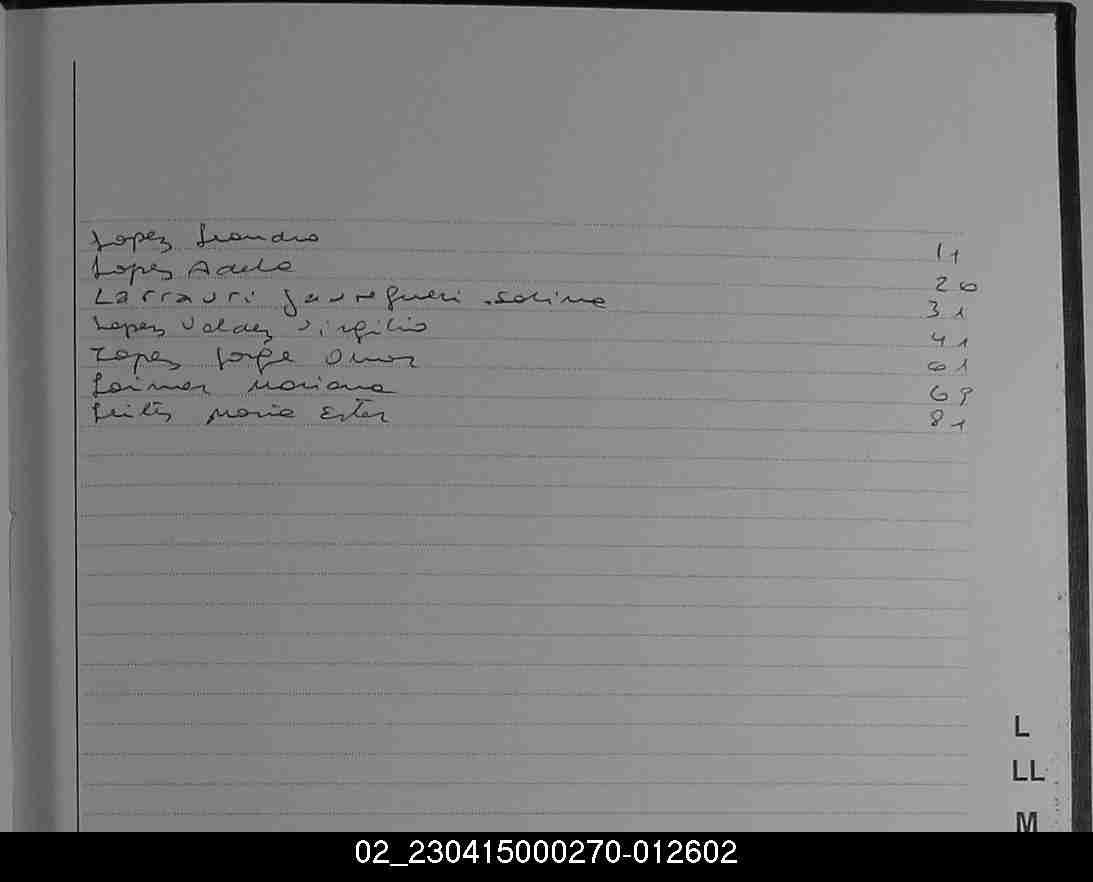 Lopez Leandro 11
Lopez Adela 20
Larrauri Jauregueri Sabina 31
Lopez Valdez Virgilio 41
Lopez Jorge Omar 61
Mariana 69
Maria Ester 81
L
LL
M
02_230415000270-012602